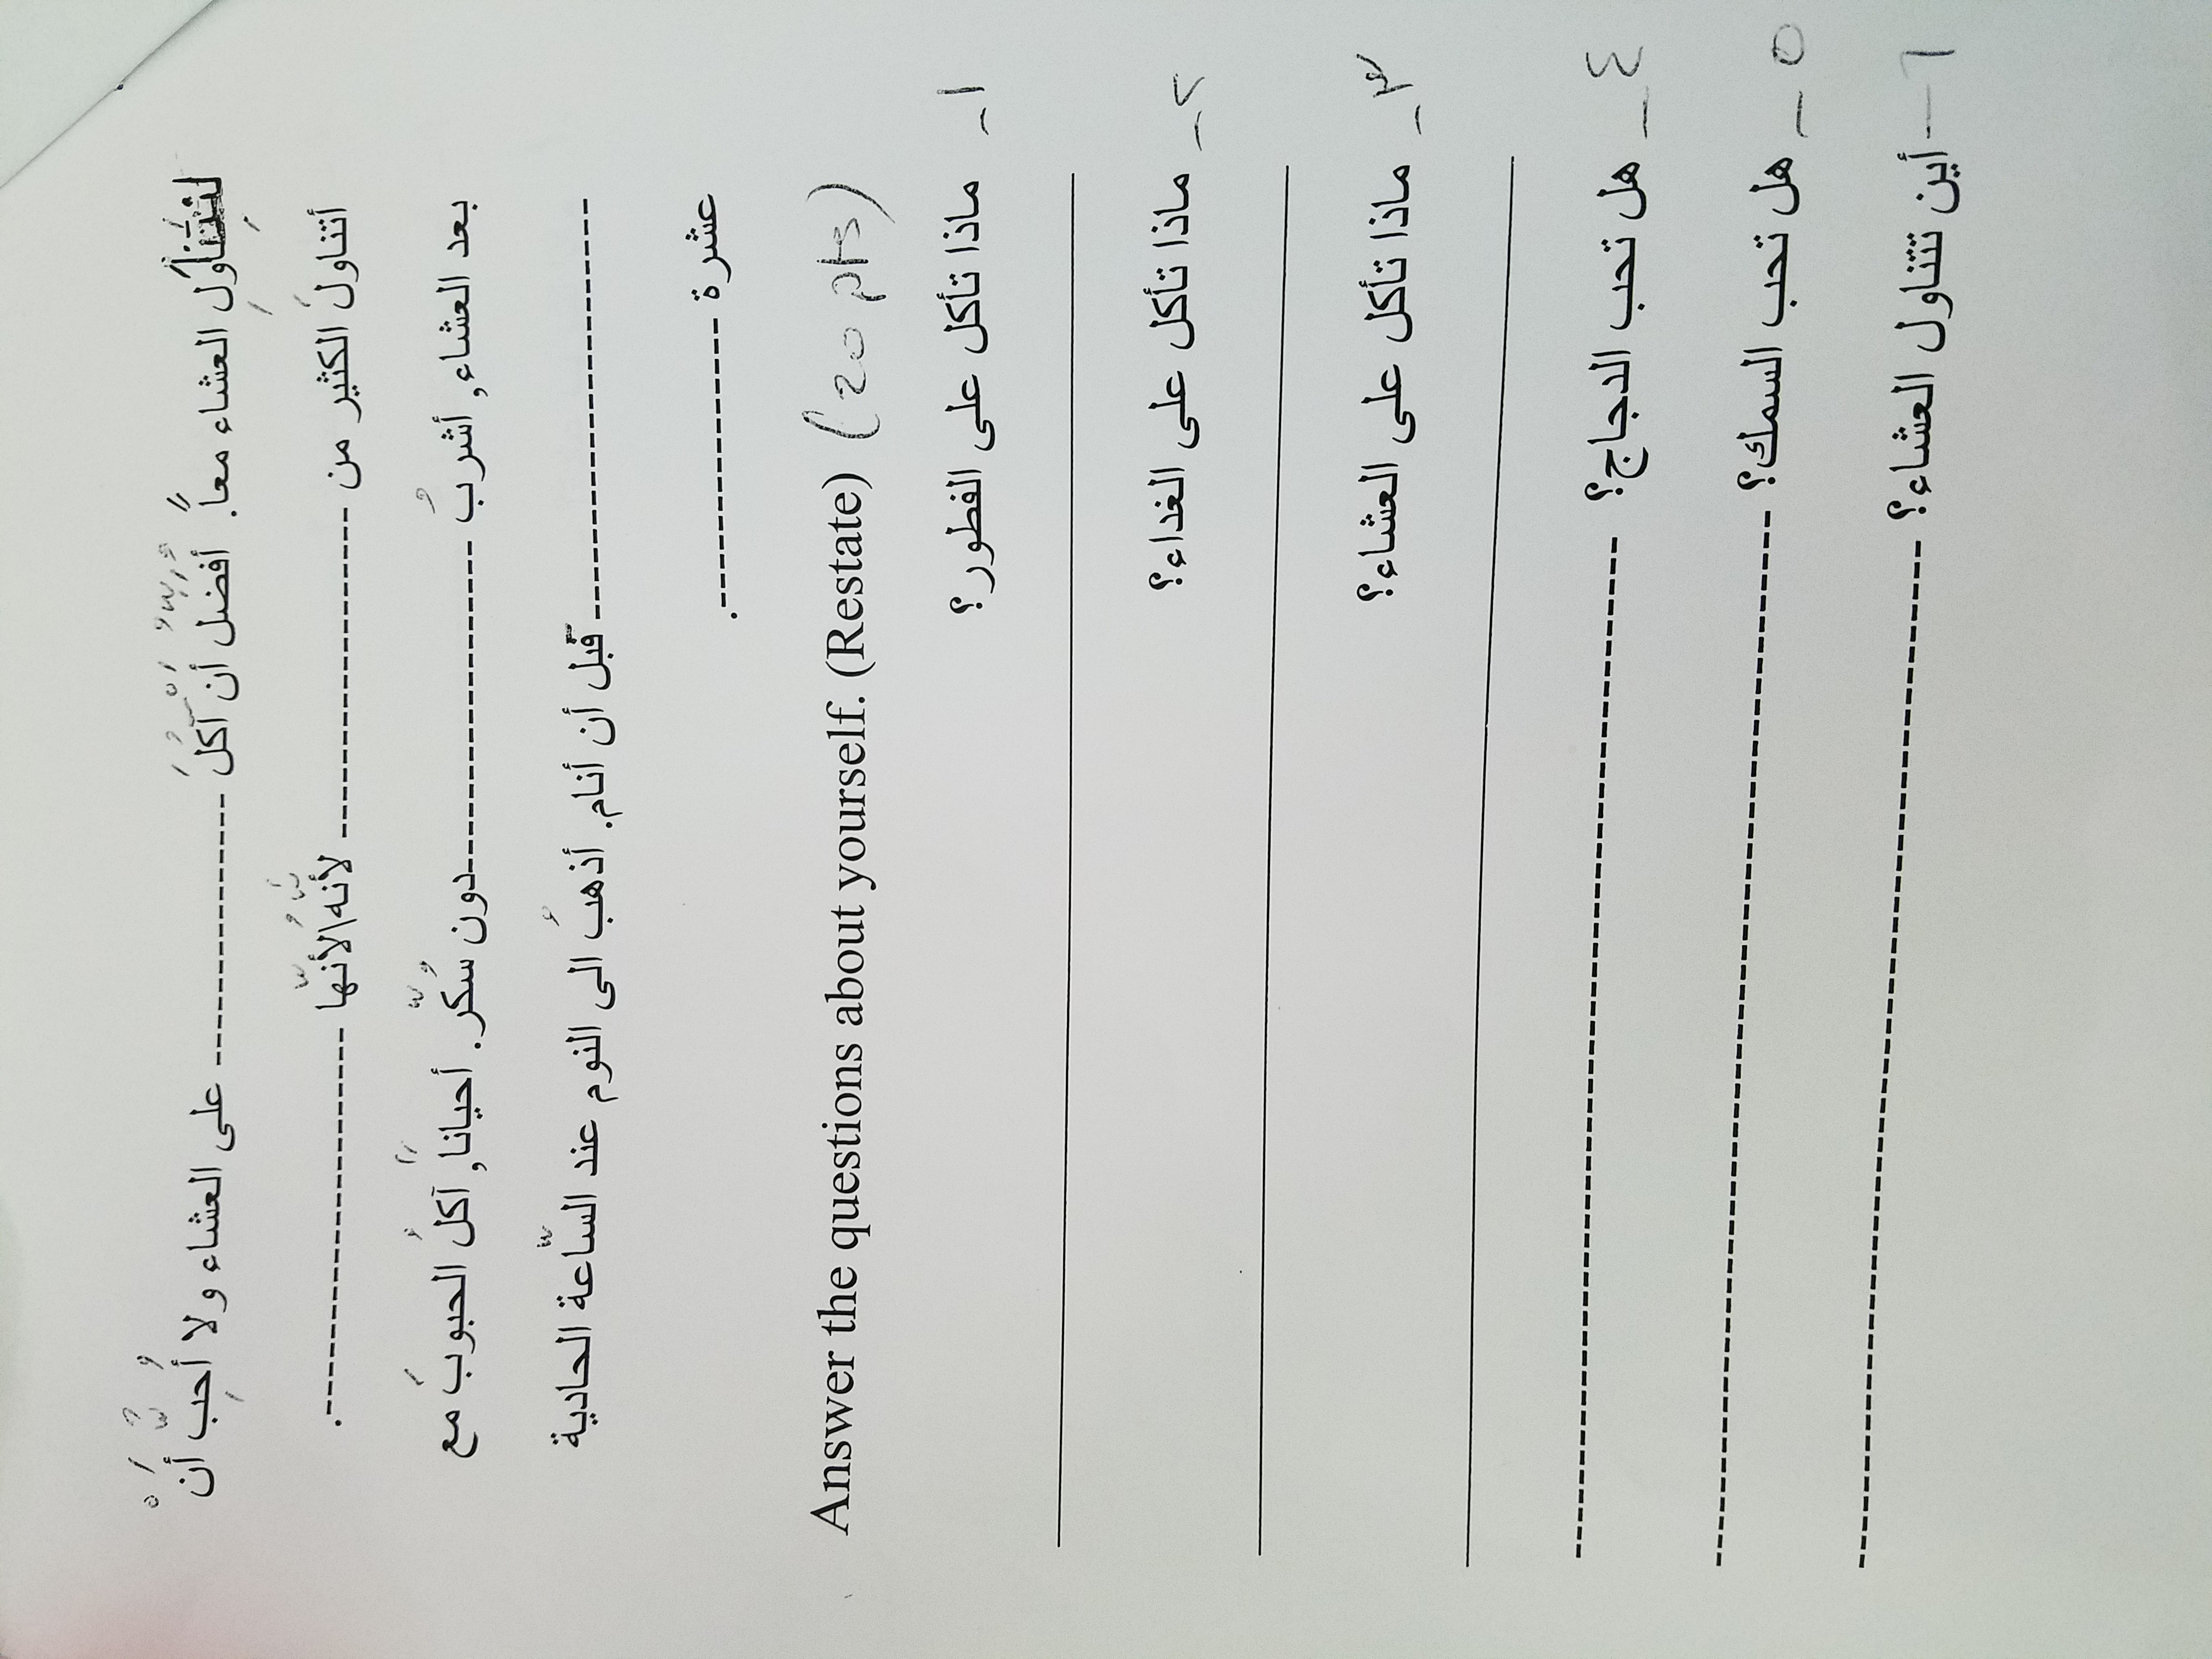 لِتَناوُلِ العشاء معاً. أفضل أن آكلَ -------------------- على العشاء ولا أُحِب أن
أتناولَ الكثير من ------------------------ لأنه\لأنّها ----------------------------.
بعد العشاء, أشربُ ------------------------دون سُكّر. أحياناً, آكلُ الحبوبَ مع
------------------------------ قبل أن أنام. أذهبُ الى النوم عند السّاعة الحادية
عشرة ---------------------.
Answer the questions about yourself. (Restate) (20 pts)
١- ماذا تأكل على الفطور؟
٢- ماذا تأكل على الغداء؟
٣- ماذا تأكل على العشاء؟
٤- هل تحب الدجاج؟ ------------------------------------------------
٥- هل تحب السمك؟ ------------------------------------------------
٦- أين تتناول العشاء؟ ------------------------------------------------